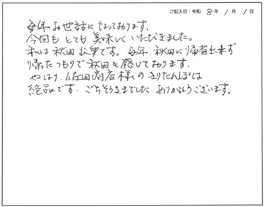 ご記入日：令和 8年 / 月 / 日
毎年お世話になっております。
今回もとても美味しくいただきました。
私は秋田出身です。毎年秋田に帰省出来ず
帰ったつもりで秋田を感じております。
やはり、佐田商店様のきりたんぽは
絶品です。ごちそうさまでした。ありがとうございます。